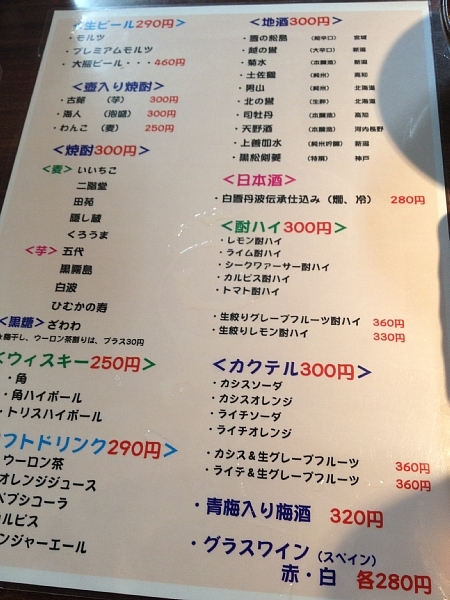 <生ビール290円>
・モルツ
・プレミアムモルツ
・大瓶ビール・・・460円
<壺入り焼酎>
・古酎 (芋) 300円
・海人 (泡盛) 300円
・わんこ (麦) 250円
<焼酎300円>
<麦>いいちこ
二階堂
田苑
隠し蔵
くろうま
<芋>五代
黒霧島
白波
ひむかの寿
<黒糖>ざわわ
梅干し、ウーロン茶割りは、プラス30円
<ウィスキー250円>
・角
・角ハイボール
・トリスハイボール
フトドリンク290円>
ウーロン茶
オレンジジュース
ペプシコーラ
カルピス
ンジャーエール
<地酒300円>
・雪の松島 (超辛口) 宮城
・越の誉 (大辛口) 新潟
・菊水 (本醸造) 新潟
・土佐鶴 (純州) 高知
・男山 (純州) 北海道
・北の誉 (生酢) 北海道
・司牡丹 (本醸造) 高知
・天野酒 (本醸造) 河内長野
・上善如水 (純州吟醸) 新潟
・黒松剣菱 (特撰) 神戸
<日本酒>
・白雪丹波伝承仕込み(燗、冷) 280円
<酎ハイ300円>
・レモン酎ハイ
・ライム酎ハイ
・シークワァーサー酎ハイ
・カルピス酎ハイ
・トマト酎ハイ
・生絞りグレープフルーツ酎ハイ 360円
・生絞りレモン酎ハイ 330円
<カクテル300円>
・カシスソーダ
・カシスオレンジ
・ライチソーダ
・ライチオレンジ
・カシス&生グレープフルーツ 360円
・ライチ&生グレープフルーツ 360円
・青梅入り梅酒 320円
・グラスワイン(スペイン)
赤・白 各280円